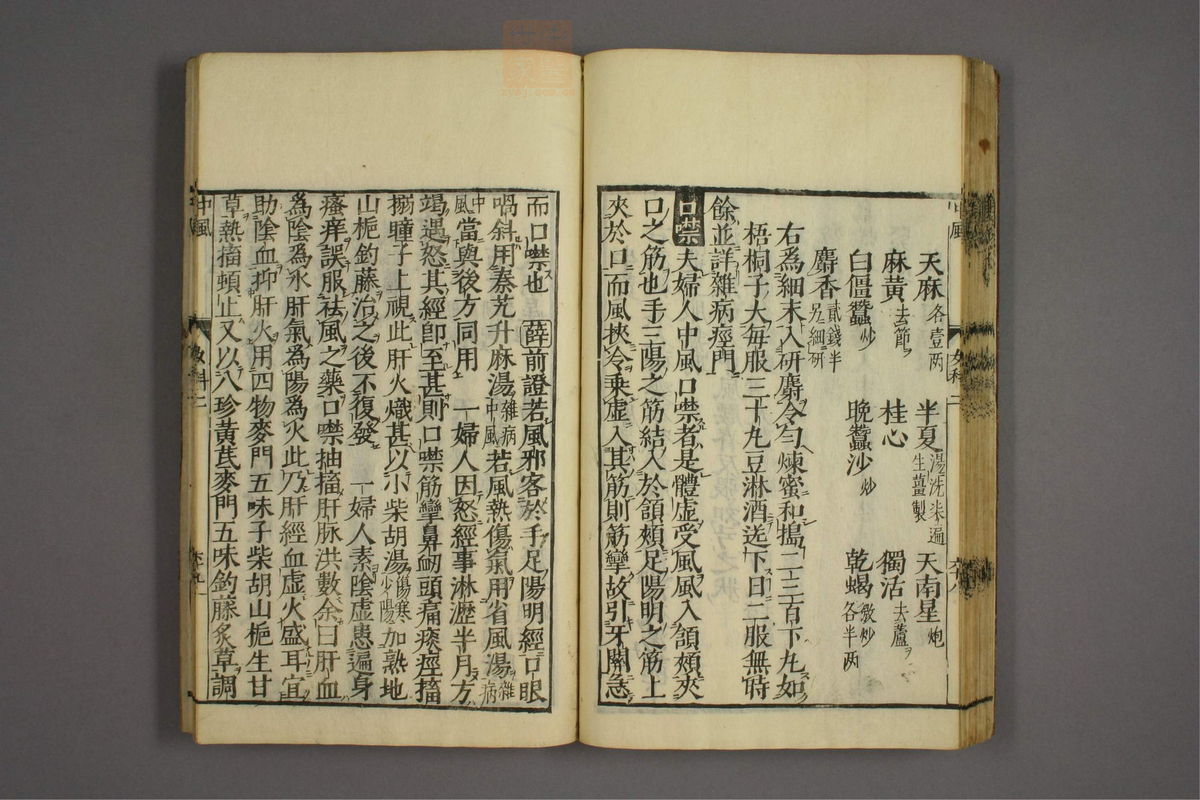 天麻各壹两 半夏湯洗柒遍生薑製 天南星炮
麻黄去節 桂心 獨活去蘆
白僵蠶炒 晚蠶沙炒 乾蝎微炒各半两
麝香貳錢半另細研
右為細末入研麝令勻煉蜜和搗二三百下丸如
梧桐子大每服三十丸豆淋酒送下日二服無時
餘並詳雜病痙門
口噤 夫婦人中風口噤者是體虛受風風入頷頰夾
口之筋也手三陽之筋結入於頷頰足陽明之筋上
夾於口而風挾冷乘虛入其筋則筋攣故引牙關急
而口噤也 薛 前證若風邪客於手足陽明經口眼
喎斜用秦艽升麻湯雜病中風若風熱傷氣用省風湯雜病
中風當與後方同用 一婦人因怒經事淋瀝半月方
竭遇怒其經即至甚則口噤筋攣鼻衂頭痛痰痙搐
搦瞳子上視此肝火熾甚以小柴胡湯傷寒少陽加熟地
山梔釣藤治之後不復發 一婦人素陰虛患遍身
瘙痒誤服祛風之藥口噤抽搐肝脉洪數余曰肝血
為陰為水肝氣為陽為火此乃肝經血虛火盛耳宜
助陰血抑肝火用四物麥門五味子柴胡山梔生甘
草熱搐頓止又以八珍黄芪麥門五味釣藤炙草調
中風 女科二